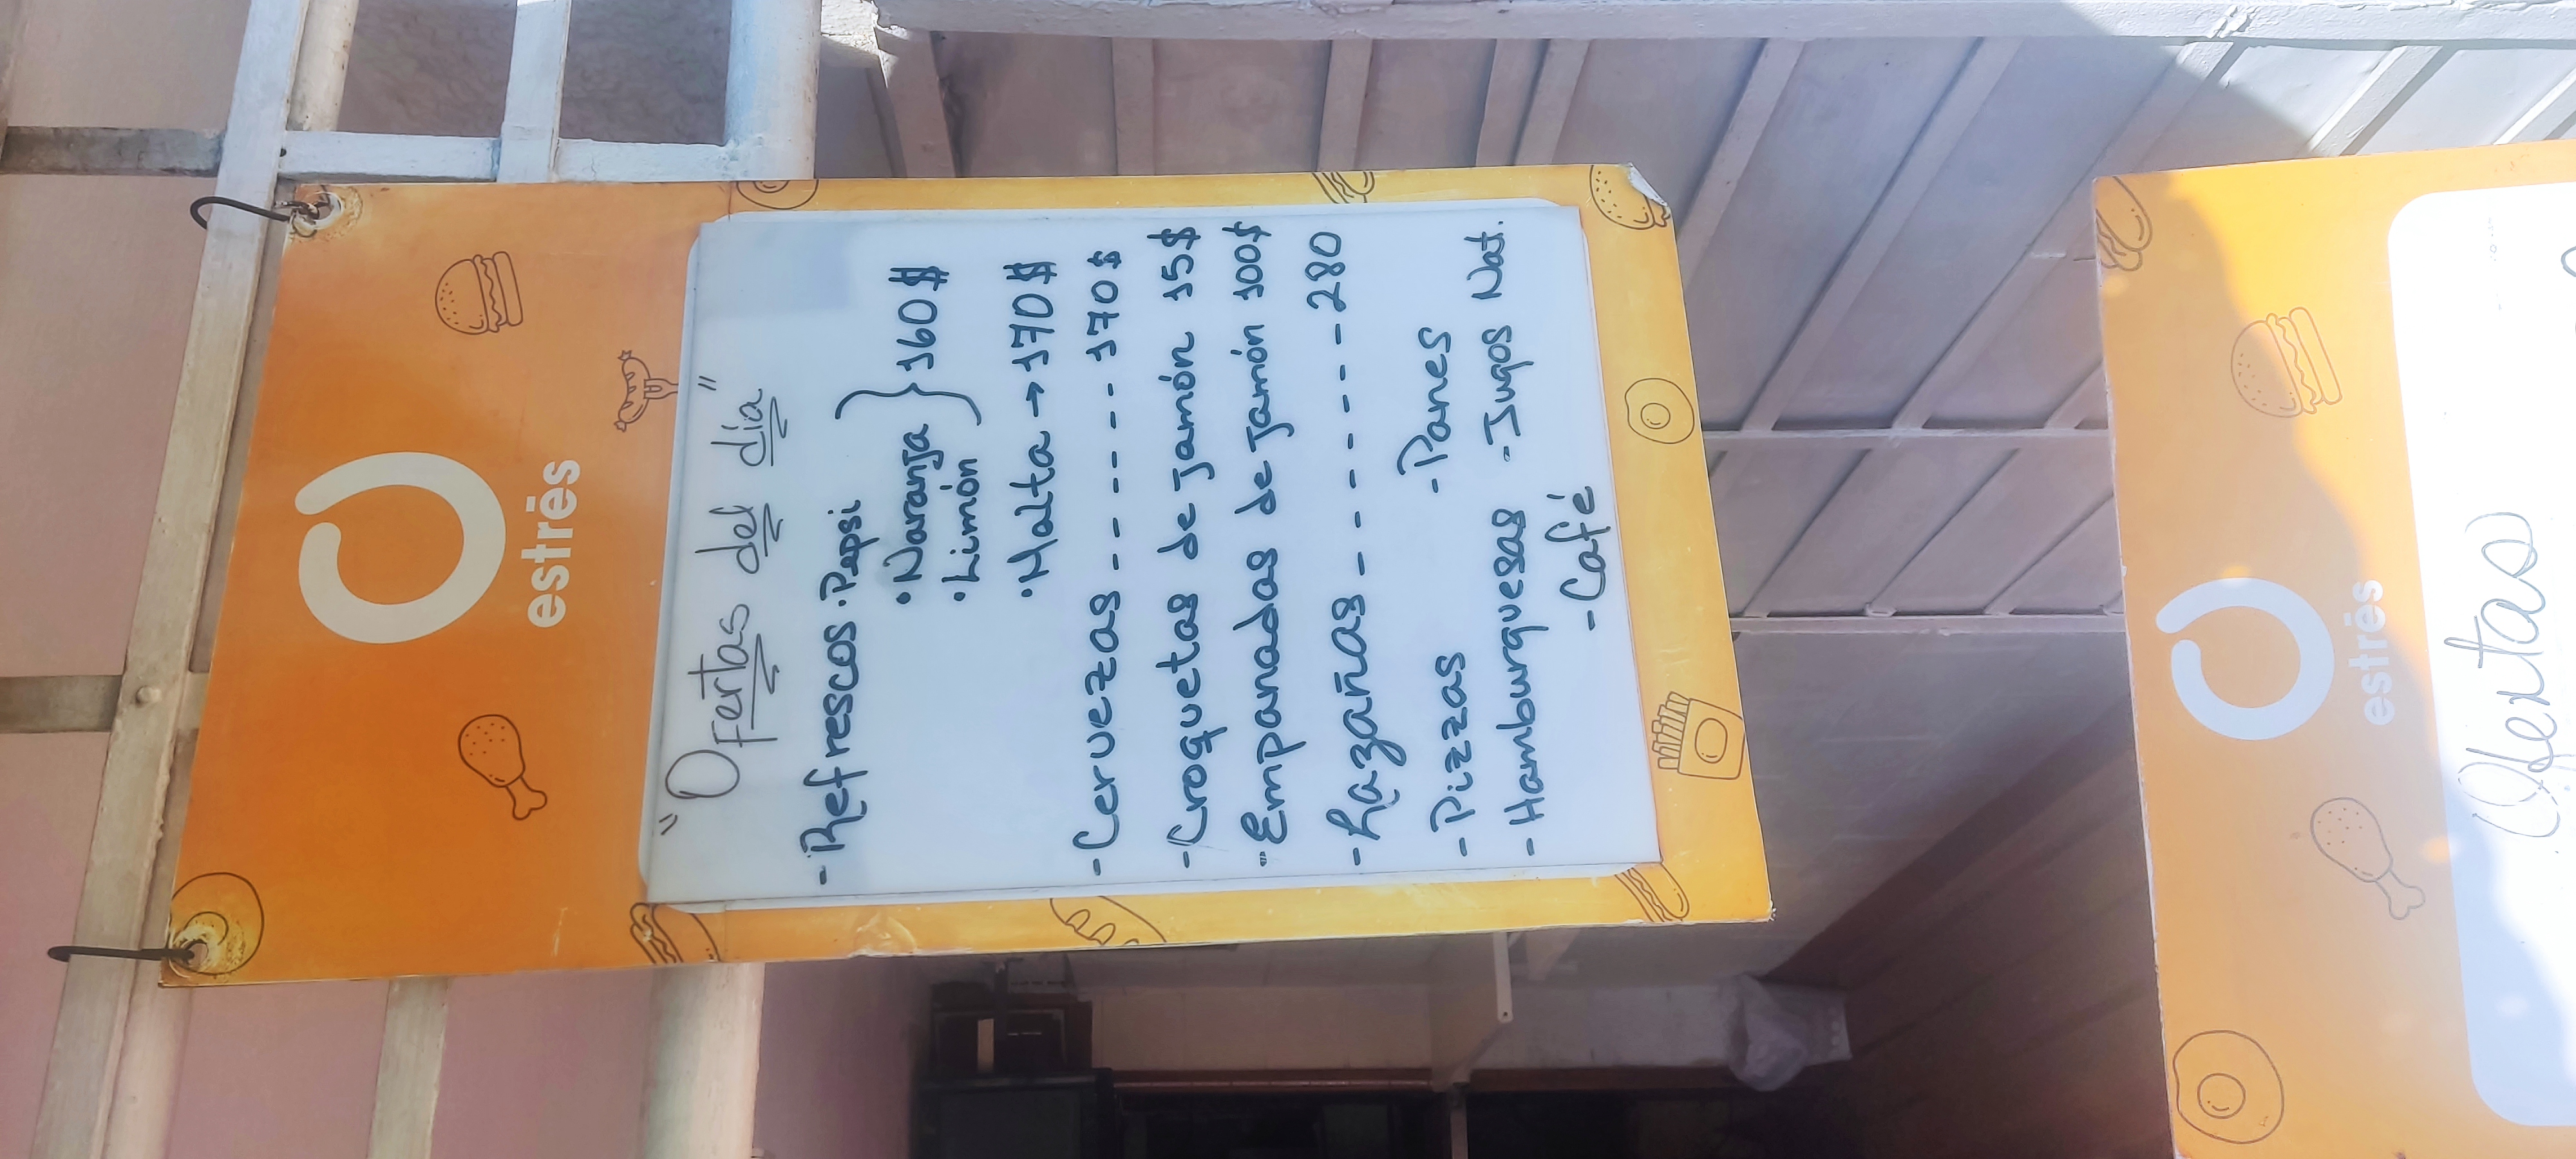 estrēs
"Ofertas del día"
- Refrescos · Pepsi
· Naranja } 160$
· Limón
· Malta → 170$
- Cervezas ------ 170$
- Croquetas de jamón 15$
- Empanadas de jamón 100$
- Lazañas ------- 280
- Pizzas - Panes
- Hamburguesas - Jugos Nat.
- Café
estrēs
Ofertas